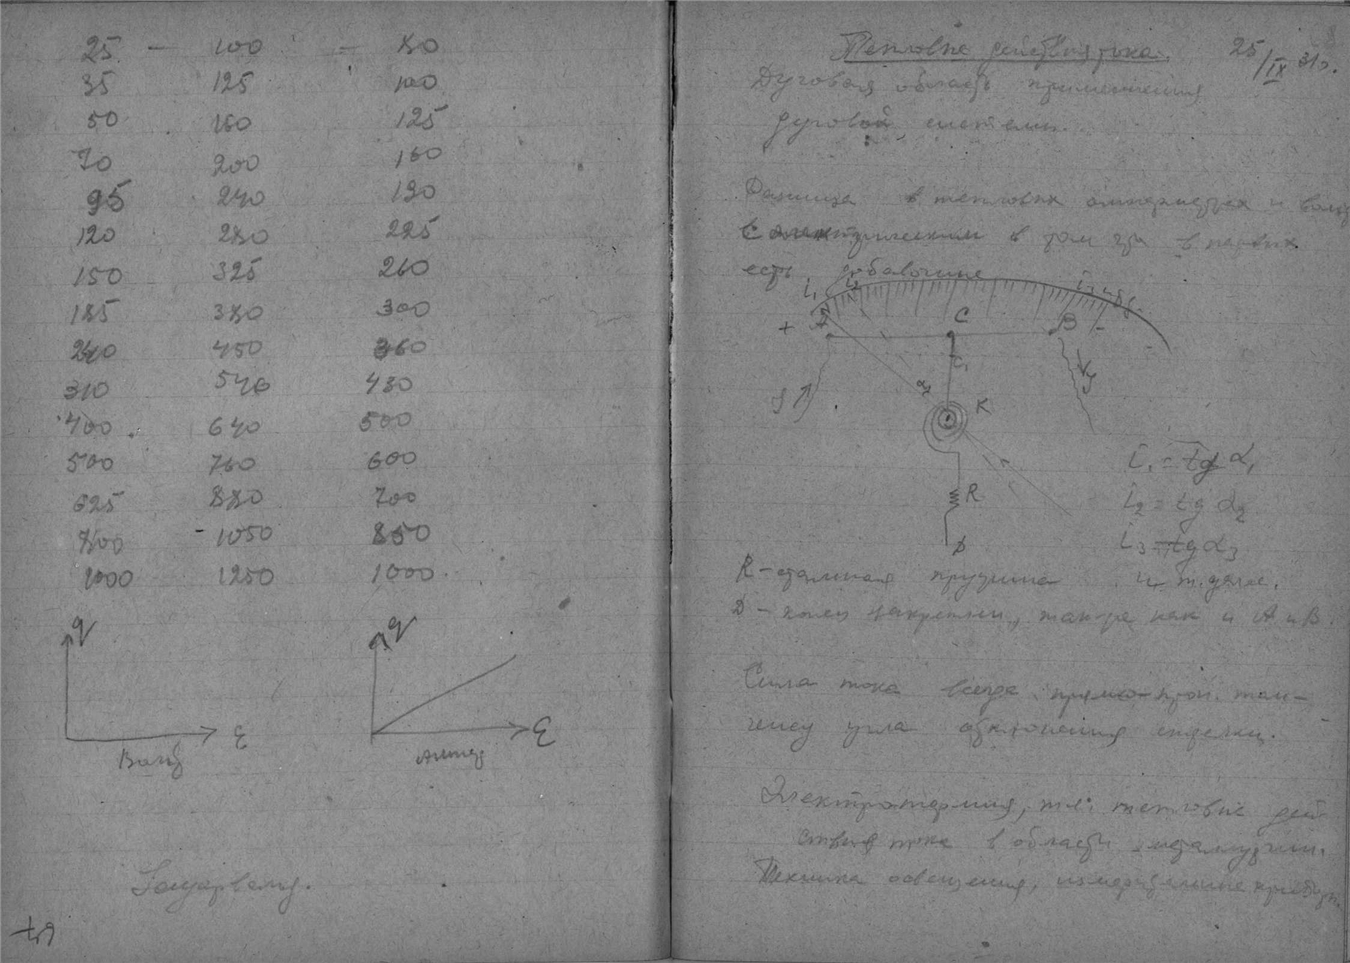 25 — 100 — 80
35 125 100
50 160 125
70 200 160
95 240 190
120 280 225
150 325 260
185 380 300
240 450 360
310 540 430
400 640 500
500 760 600
625 880 700
800 1050 850
1000 1250 1000
q q
Вольт Ампер
Тепловые действия тока. 25/IX 31г.
Дуговая область применения
дуговой системы.
Разница в тепловых амперметрах и вольт
С электрическим в том что в первых
есть добавочные
i₁ i₂
+ A C B -
C₁
K
R
D
i₁ = tg α₁
i₂ = tg α₂
i₃ = tg α₃
K – стальная пружина и т. далее.
D – конец закреплен, также как и A и B.
Сила тока всегда прямо-проп. тан-
генсу угла отклонения стрелки.
Электротермия, т.е. тепловые дей
ствия тока в области металлургии.
Техника освещения, измерительные приборы.